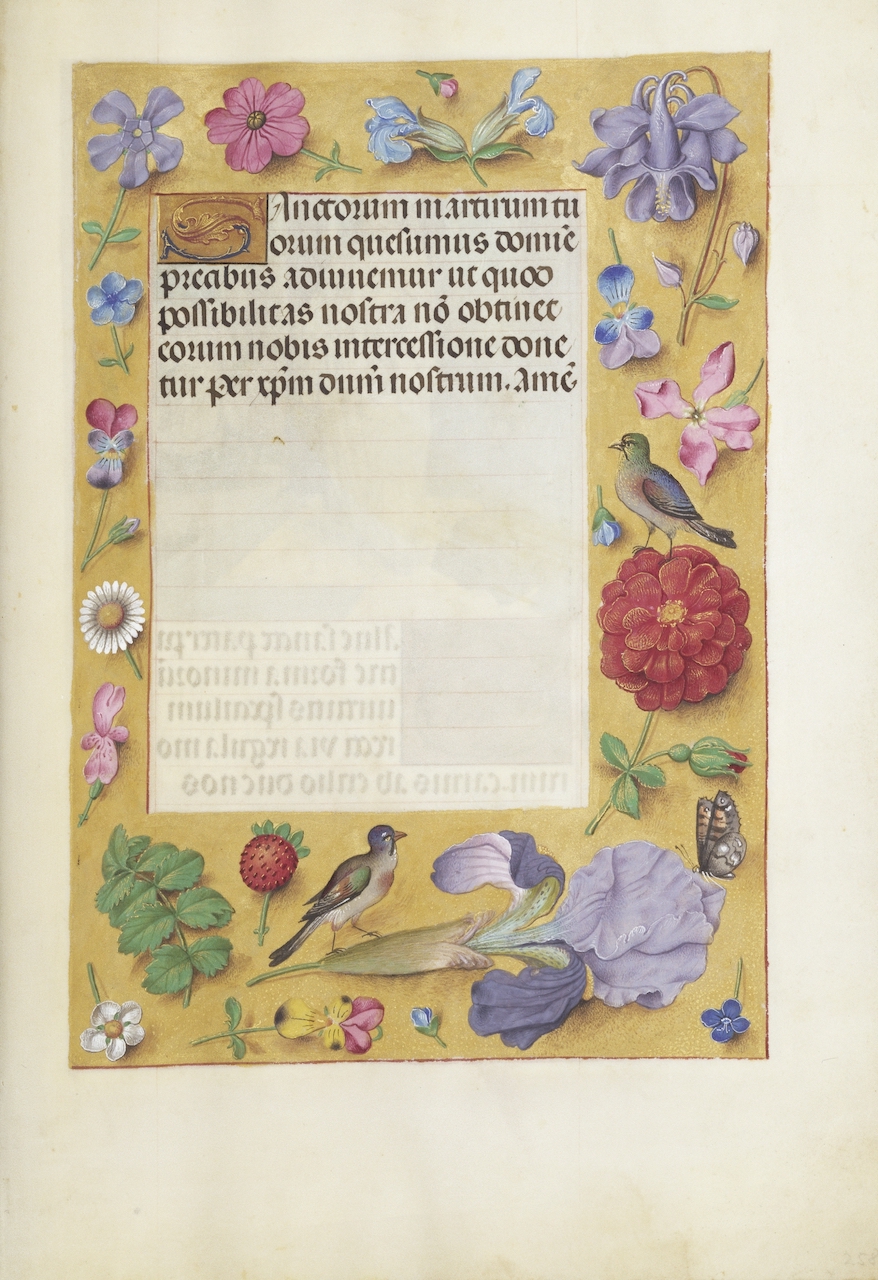 Sanctorum martirum tu
orum quesumus domīe
precibus adiuuemur ut quod
possibilitas nostra nō obtinet
eorum nobis intercessione done
tur per xp̄m dnm̄ nostrum. amē